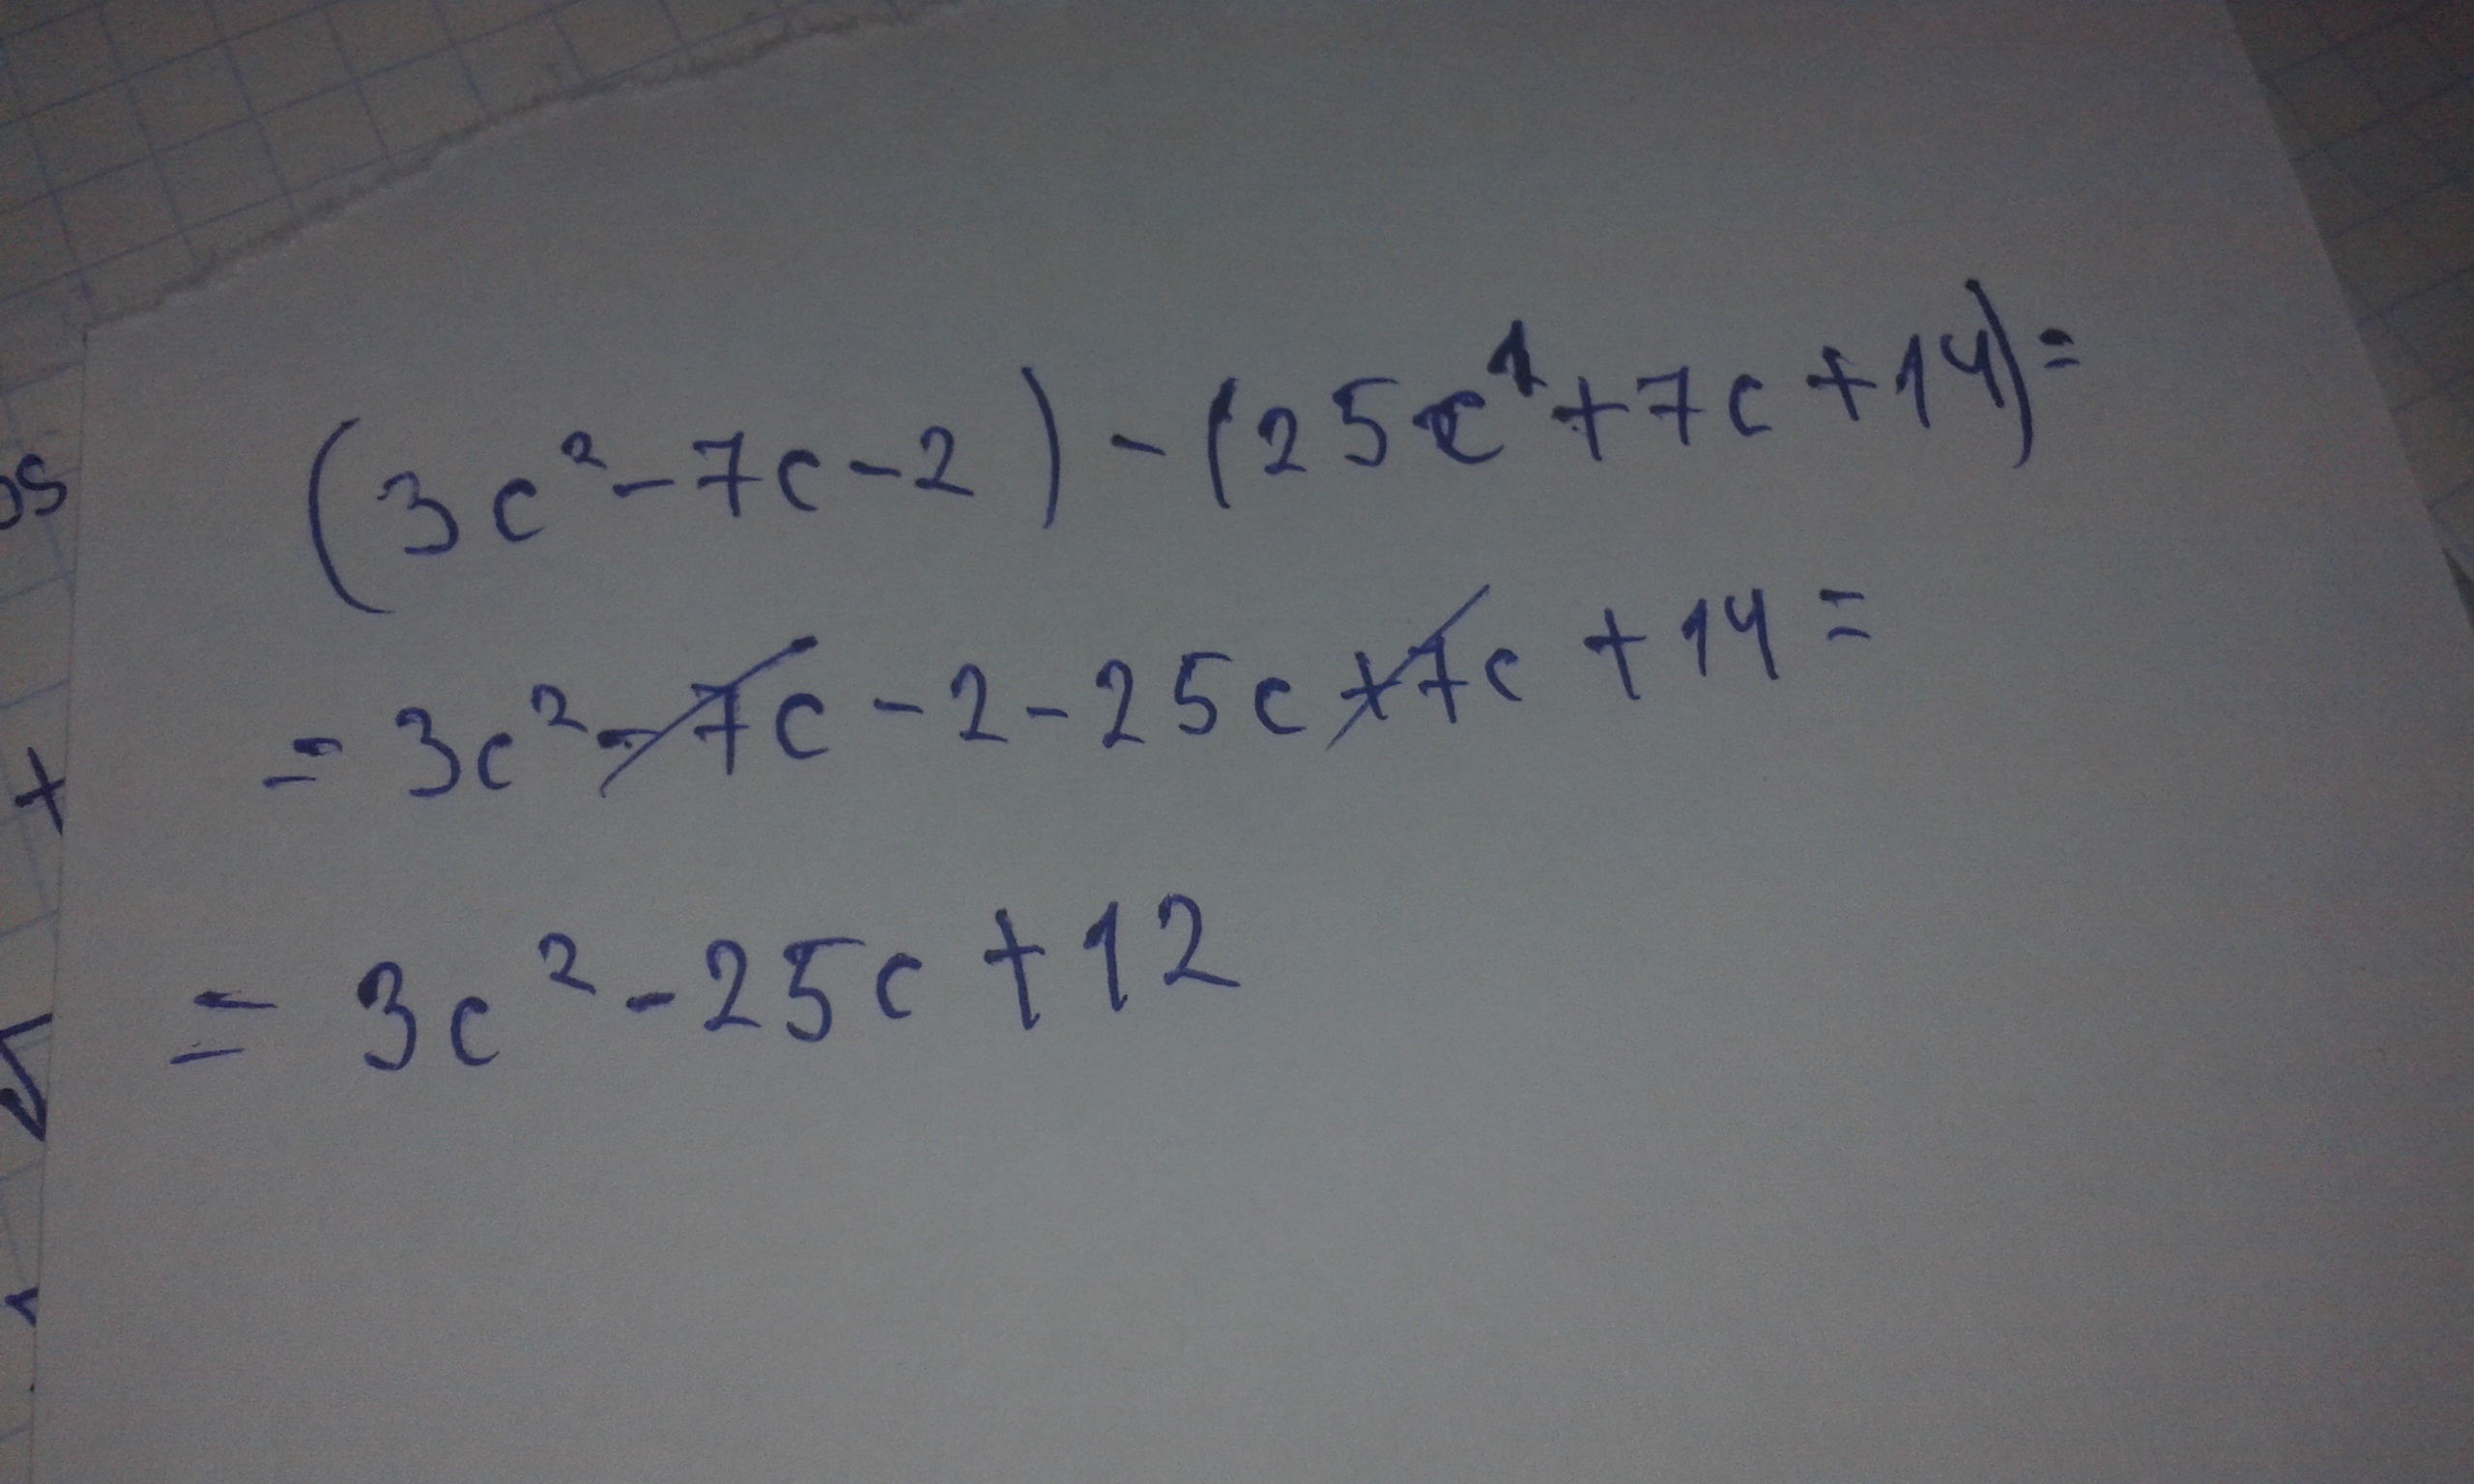 (3c²-7c-2)-(25c¹+7c+14)=
=3c²-7c-2-25c+7c+14=
=3c²-25c+12
os
+
√